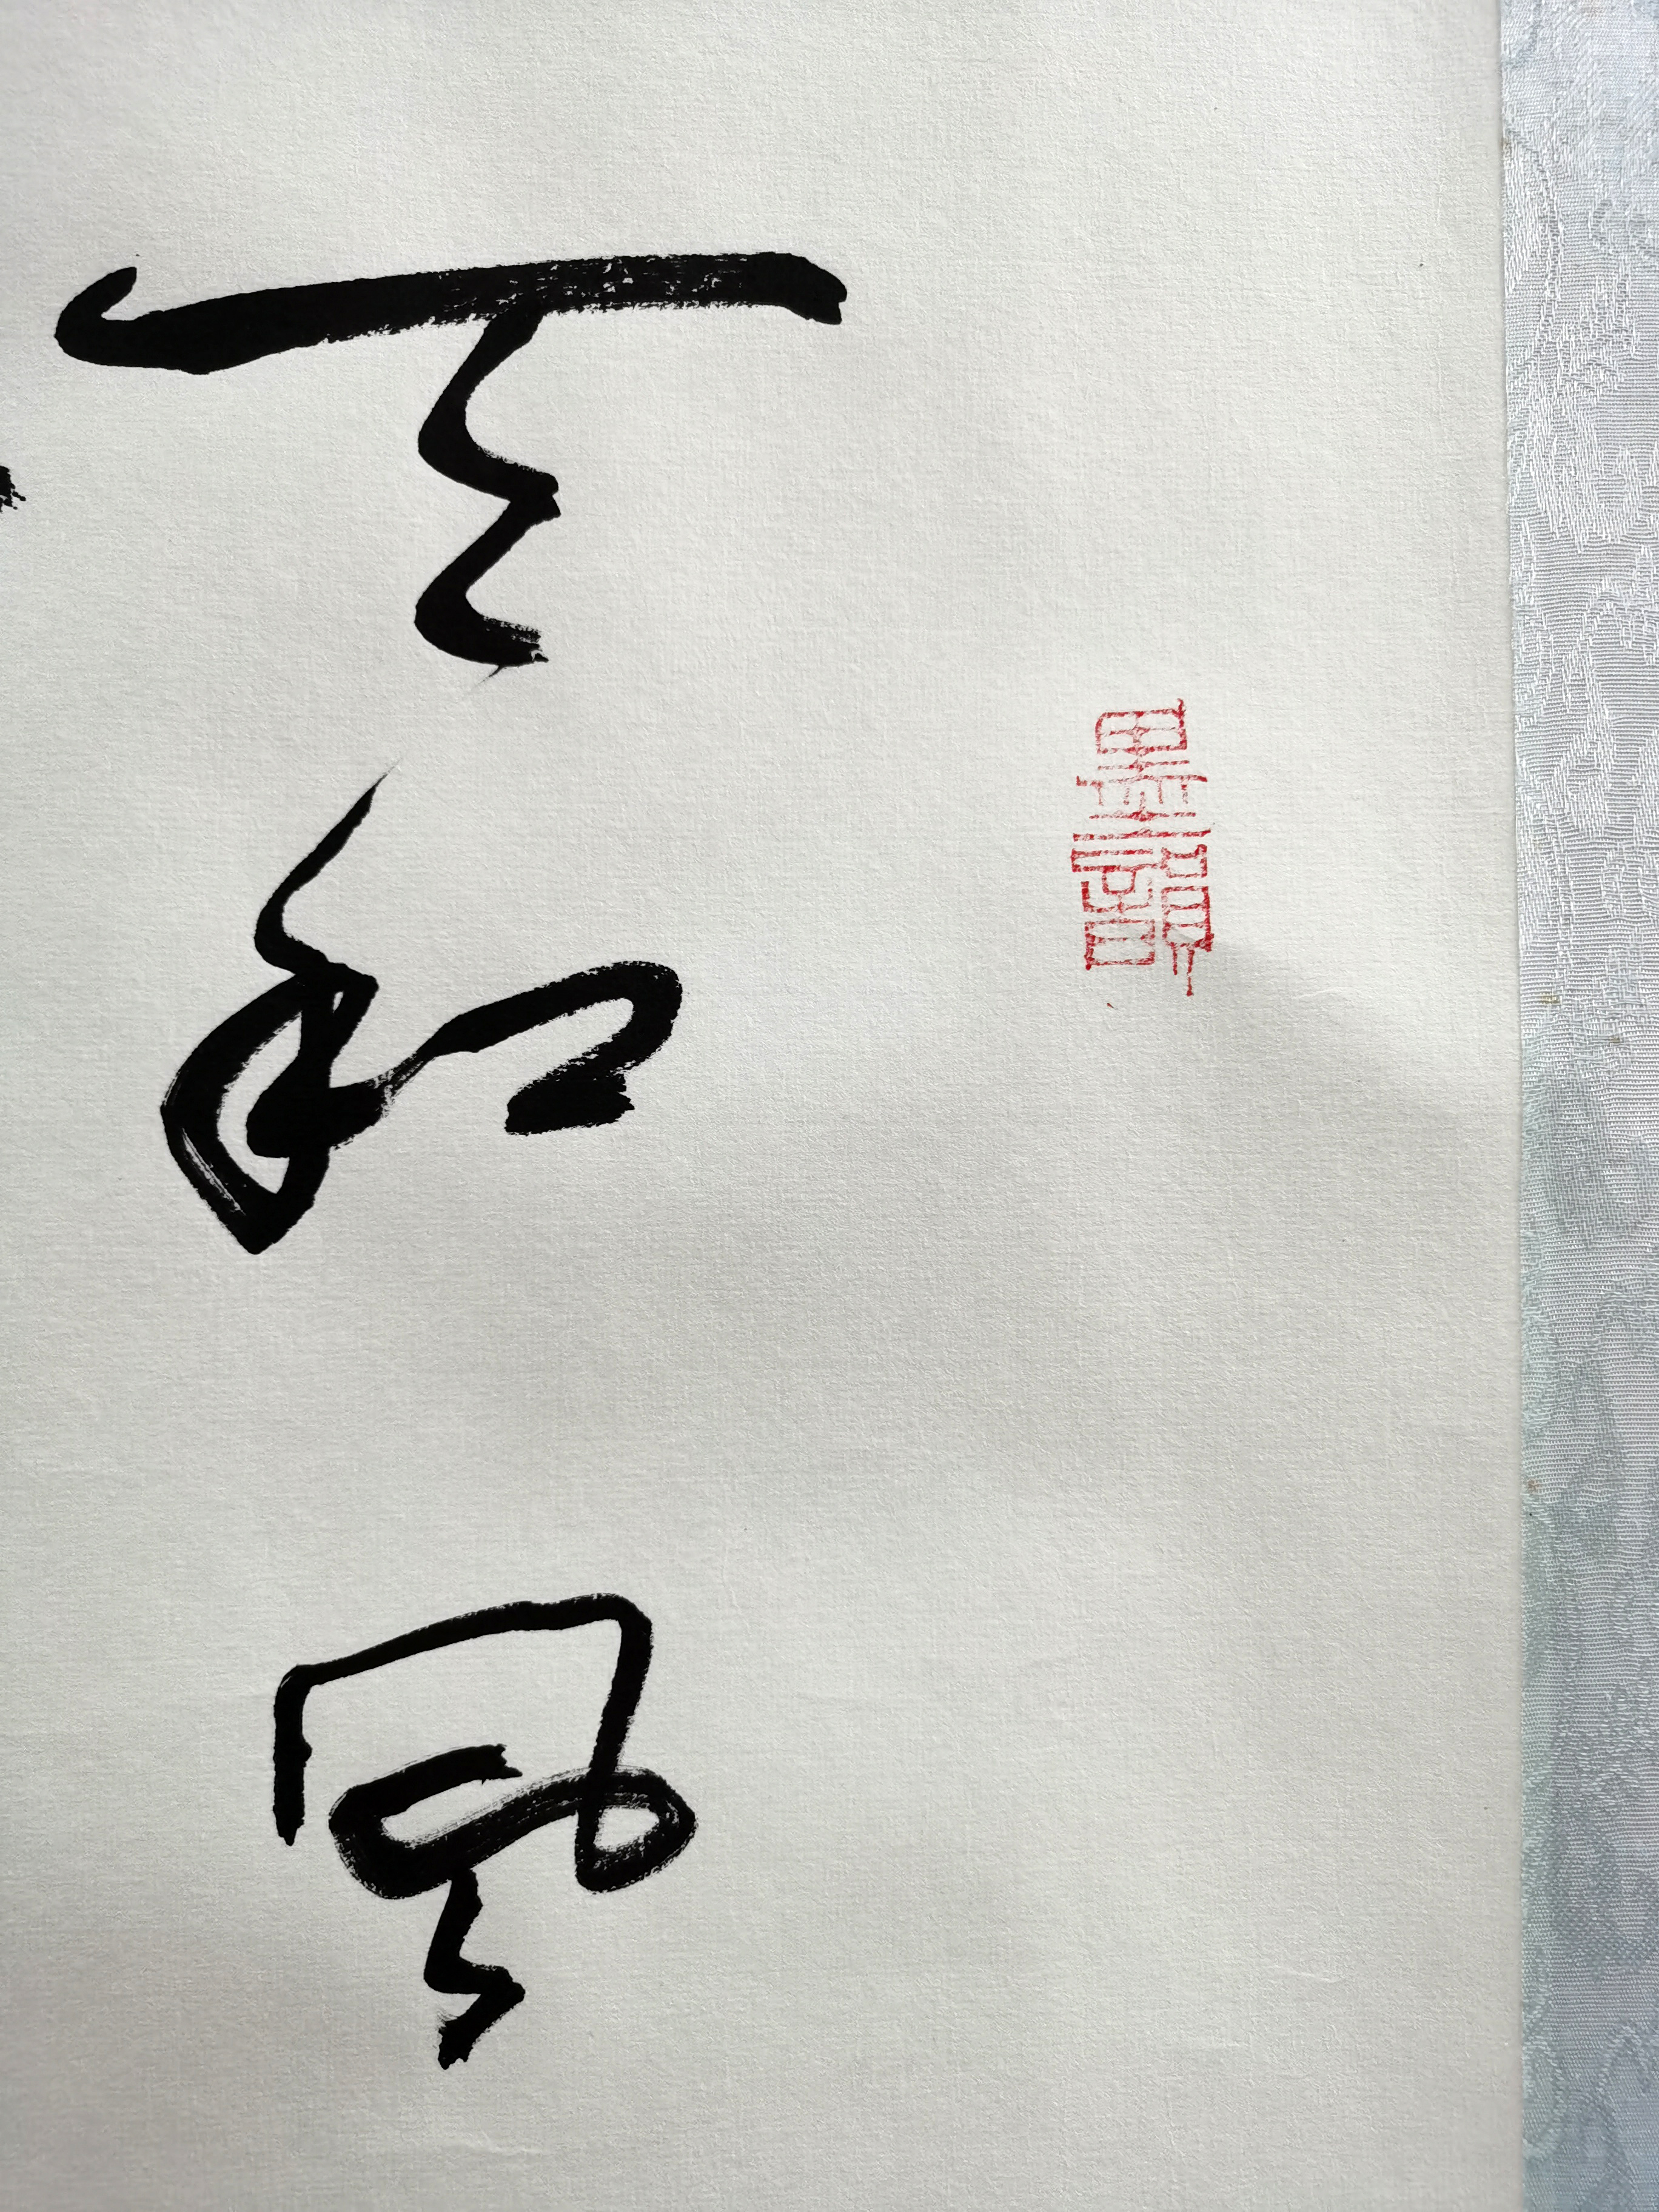 和風
墨韻